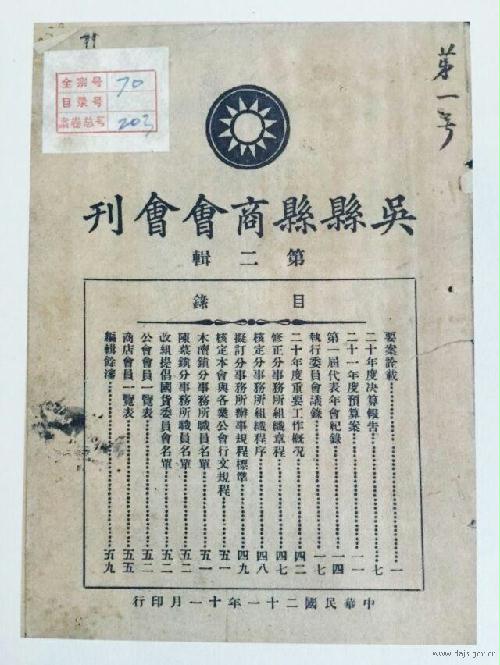 全宗号 70
目录号
案卷总号 203
第一号
吳縣縣商會會刊
第二輯
目錄
要案諭載……一
二十年度決算報告……七
二十一年度預算案……一一
第一屆代表年會紀錄……一四
執行委員會議錄……一七
二十年度重要工作概况……四二
修正分事務所組織章程……四七
核定分事務所組織程序……四八
擬訂分事務所辦事規程標準……四九
核定本會與各業公會行文規程……五一
木瀆鎮分事務所職員名單……五一
陳墓鎮分事務所職員名單……五二
改組提倡國貨委員會名單……五二
公會會員一覽表……五二
商店會員一覽表……五五
編輯餘瀋……五九
中華民國二十一年十一月印行
www.dajs.gov.cn